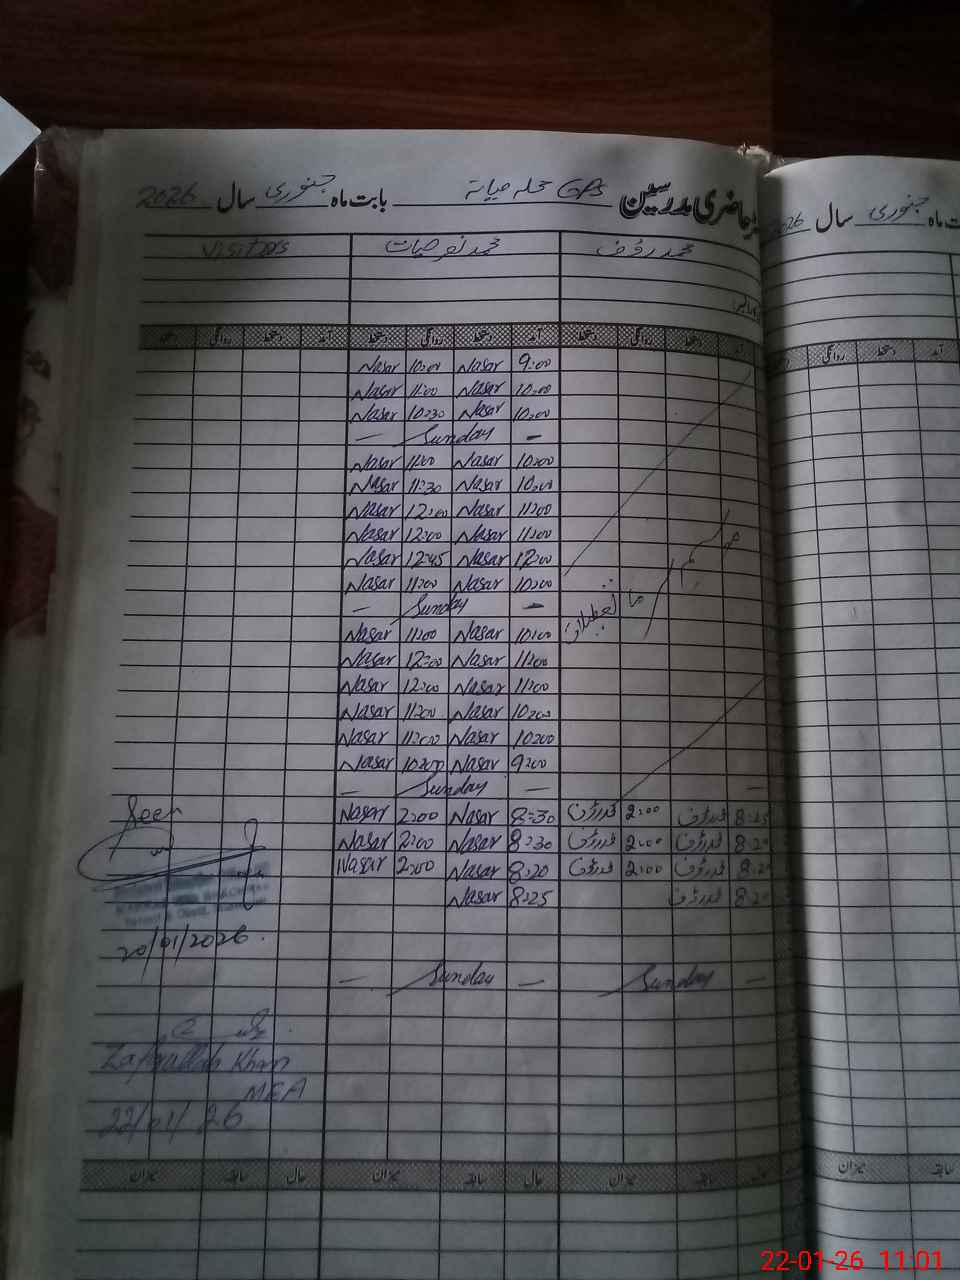 حاضری مدرسین GPS محلہ میانہ بابت ماہ جنوری سال 2026
ماہ جنوری سال 2026
محمد رؤف محمد نصر حیات Visitors
آمد دستخط روانگی دستخط آمد دستخط روانگی دستخط آمد دستخط روانگی دستخط
آمد دستخط روانگی دستخط
9:00 Nasar 10:00 Nasar
10:00 Nasar 11:00 Nasar
10:00 Nasar 10:30 Nasar
— Sunday —
10:00 Nasar 11:00 Nasar
10:00 Nasar 11:30 Nasar
11:00 Nasar 12:00 Nasar
11:00 Nasar 12:00 Nasar
12:00 Nasar 12:45 Nasar
10:00 Nasar 11:00 Nasar
— Sunday —
موسم سرما تعطیلات
10:00 Nasar 11:00 Nasar
11:00 Nasar 12:00 Nasar
11:00 Nasar 12:00 Nasar
10:00 Nasar 11:00 Nasar
10:00 Nasar 11:00 Nasar
9:00 Nasar 10:00 Nasar
— Sunday —
8:25 محمد رؤف 2:00 محمد رؤف 8:30 Nasar 2:00 Nasar
8:20 محمد رؤف 2:00 محمد رؤف 8:30 Nasar 2:00 Nasar
8:20 محمد رؤف 2:00 محمد رؤف 8:20 Nasar 2:00 Nasar
8:20 محمد رؤف 8:25 Nasar
Seen
20/01/2026.
— Sunday — Sunday —
Zafarullah Khan
MEA
22/01/26
حال سابقہ میزان حال سابقہ میزان حال سابقہ میزان
سابقہ میزان
22-01-26 11:01